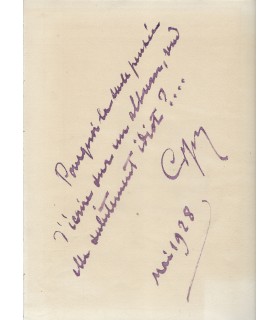 Pourquoi la seule pensée
d'écrire sur un album, rend
elle subitement idiot ?....
Mai 1928